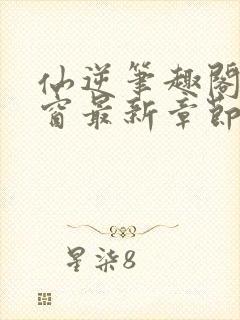 仙逆笔趣阁
窗最新章节
星柒8